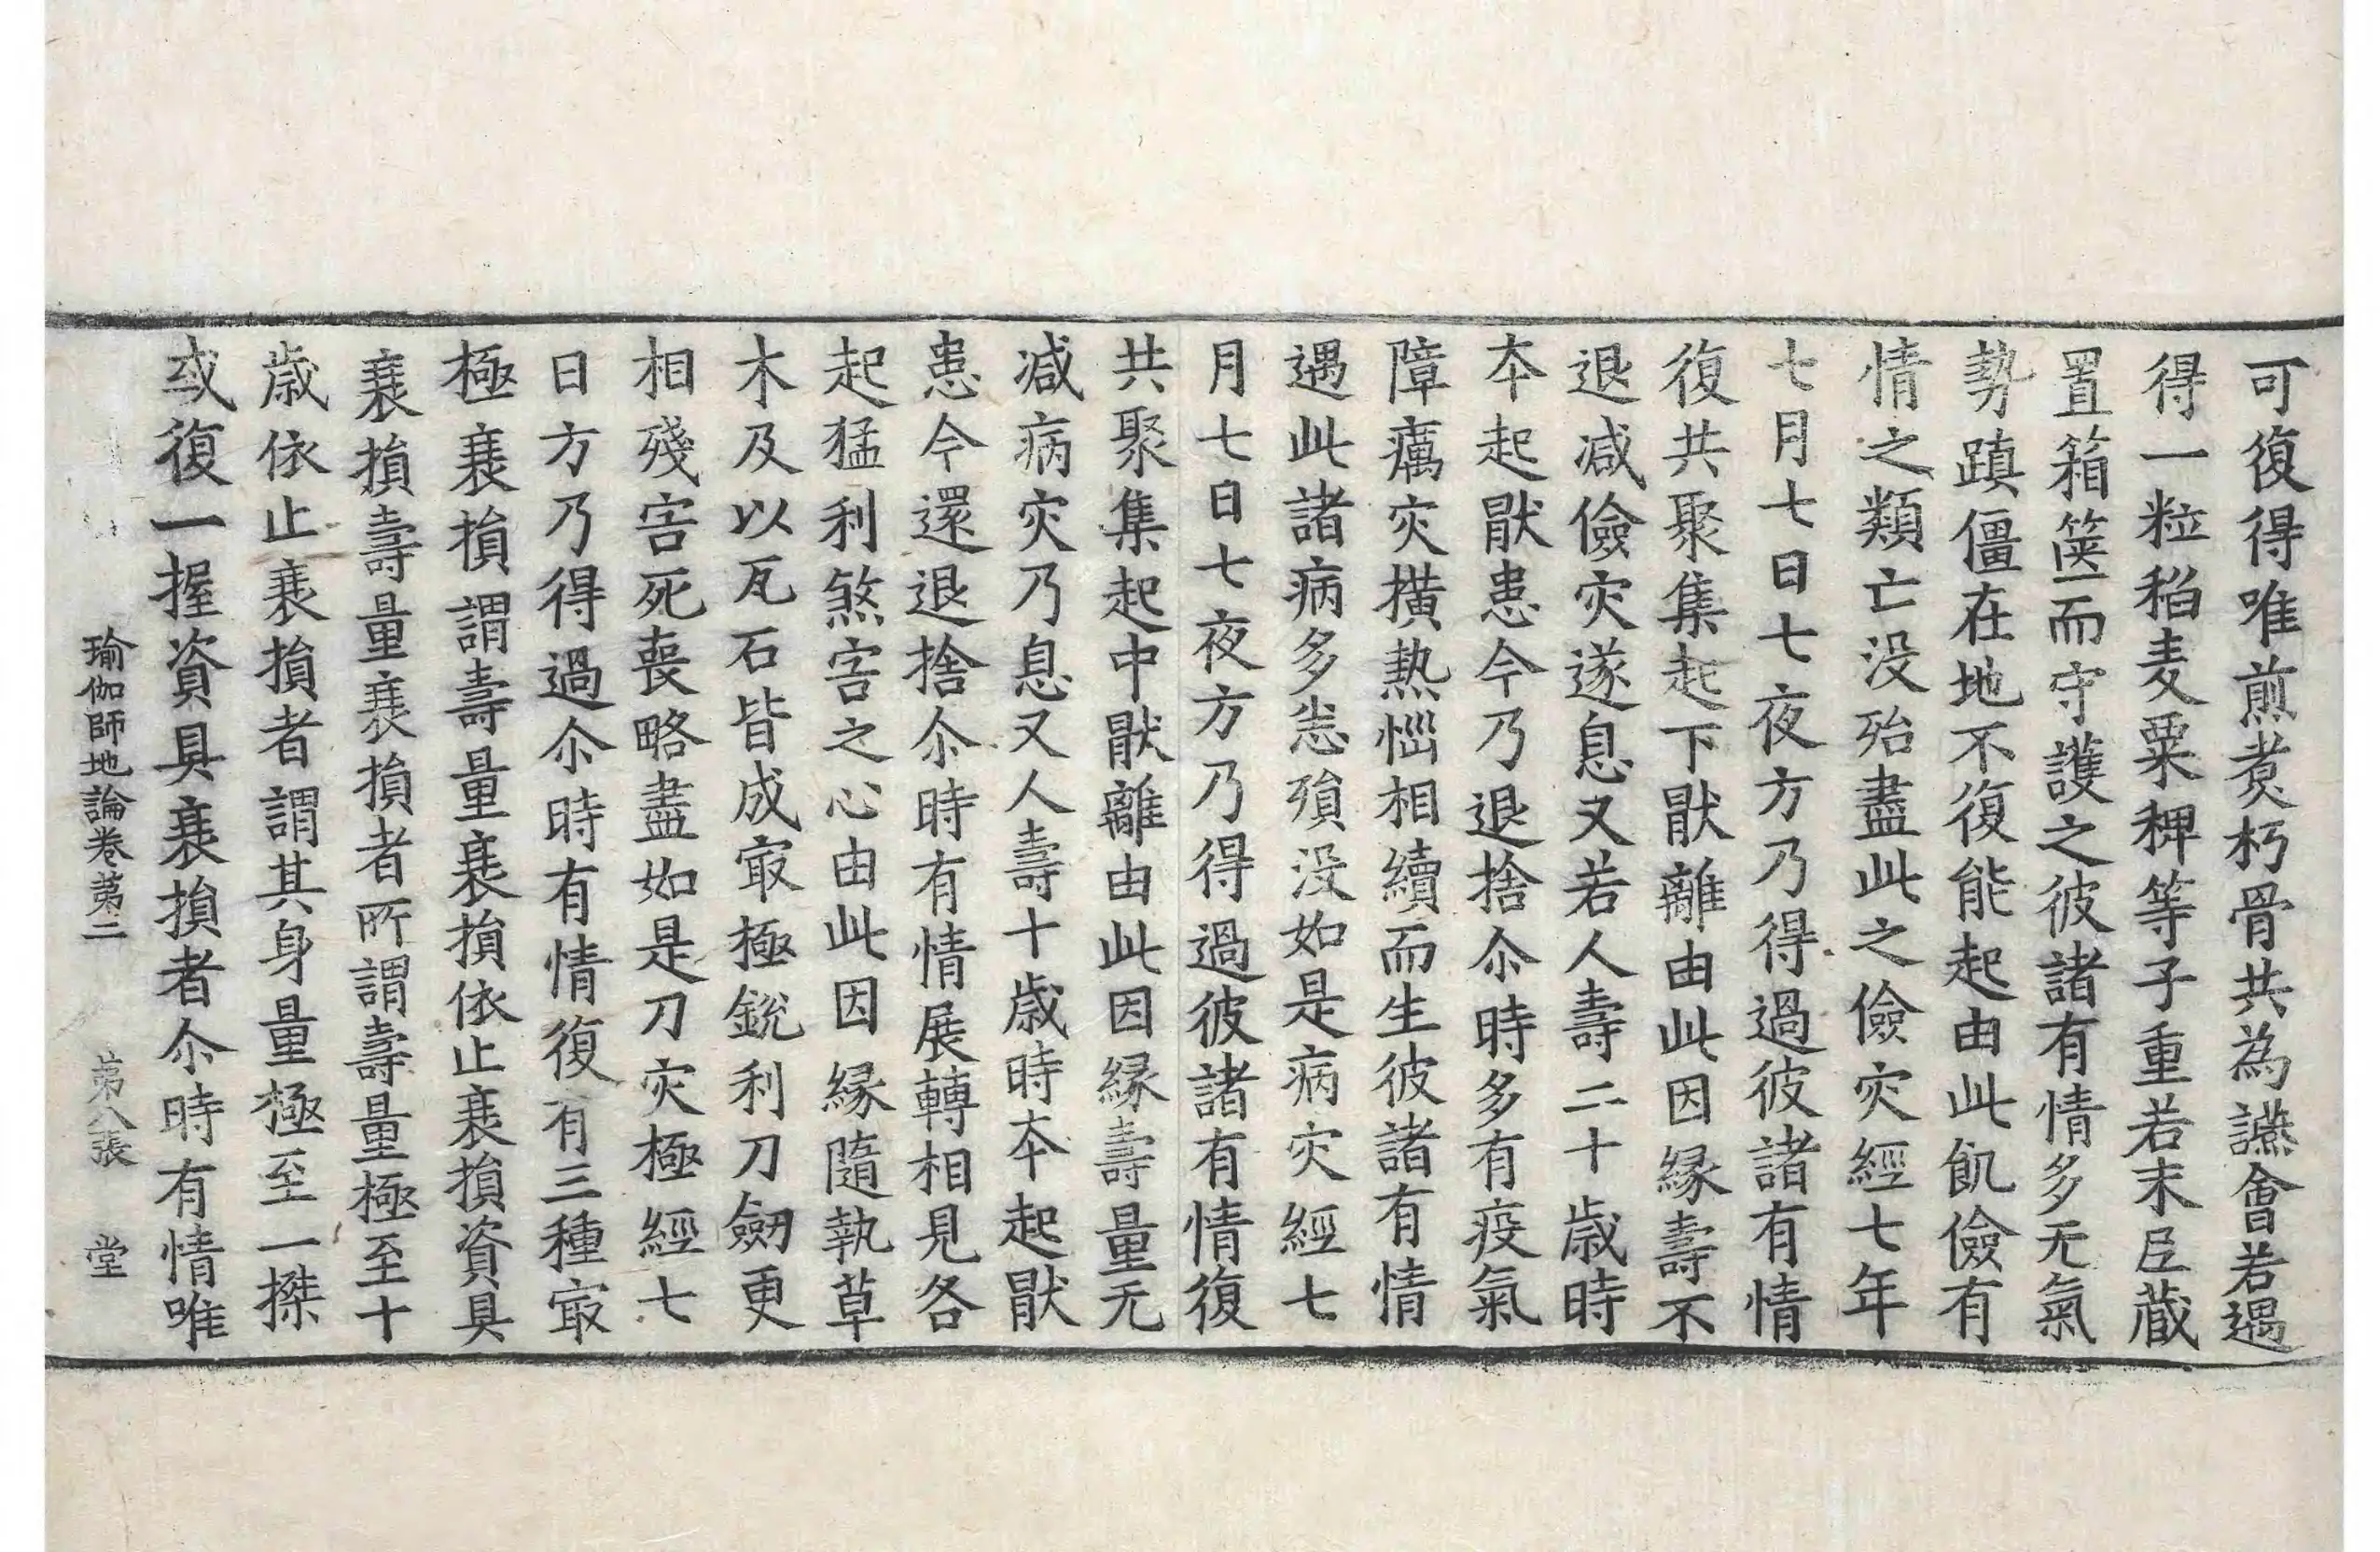 可復得唯煎煑朽骨共為讌會若遇
得一粒稻麦粟稗等子重若末尼蔵
置箱篋而守護之彼諸有情多无氣
勢蹎僵在地不復能起由此飢儉有
情之類亡没殆盡此之儉灾經七年
七月七日七夜方乃得過彼諸有情
復共聚集起下猒離由此因縁壽不
退減儉灾遂息又若人壽二十歳時
夲起猒患今乃退捨尒時多有疫氣
障癘灾撗熱惱相續而生彼諸有情
遇此諸病多恙殞没如是病灾經七
月七日七夜方乃得過彼諸有情復
共聚集起中猒離由此因縁壽量无
減病灾乃息又人壽十歳時夲起猒
患今還退捨尒時有情展轉相見各
起猛利煞害之心由此因縁隨執草
木及以瓦石皆成㝡極銳利刀劒更
相殘害死喪略盡如是刀灾極經七
日方乃得過尒時有情復有三種㝡
極衰損謂壽量衰損依止衰損資具
衰損壽量衰損者所謂壽量極至十
歳依止衰損者謂其身量極至一搩
或復一握資具衰損者尒時有情唯
瑜伽師地論卷第二 第八張 堂